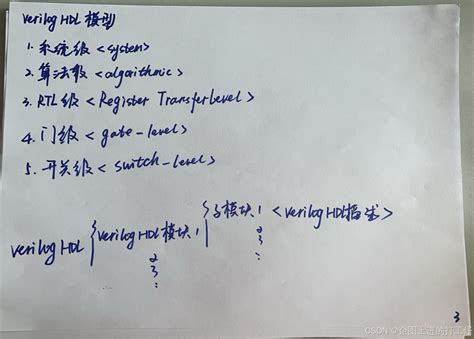 verilog HDL 模型
1. 系统级 <system>
2. 算法级 <algorithmic>
3. RTL级 < Register Transfer Level>
4. 门级 < gate-level>
5. 开关级 < switch-level>
子模块1 <verilog HDL描述>
verilog HDL { verilog HDL 模块1 {
2 2
3 3
: :
3
CSDN @企图上进的打工怪